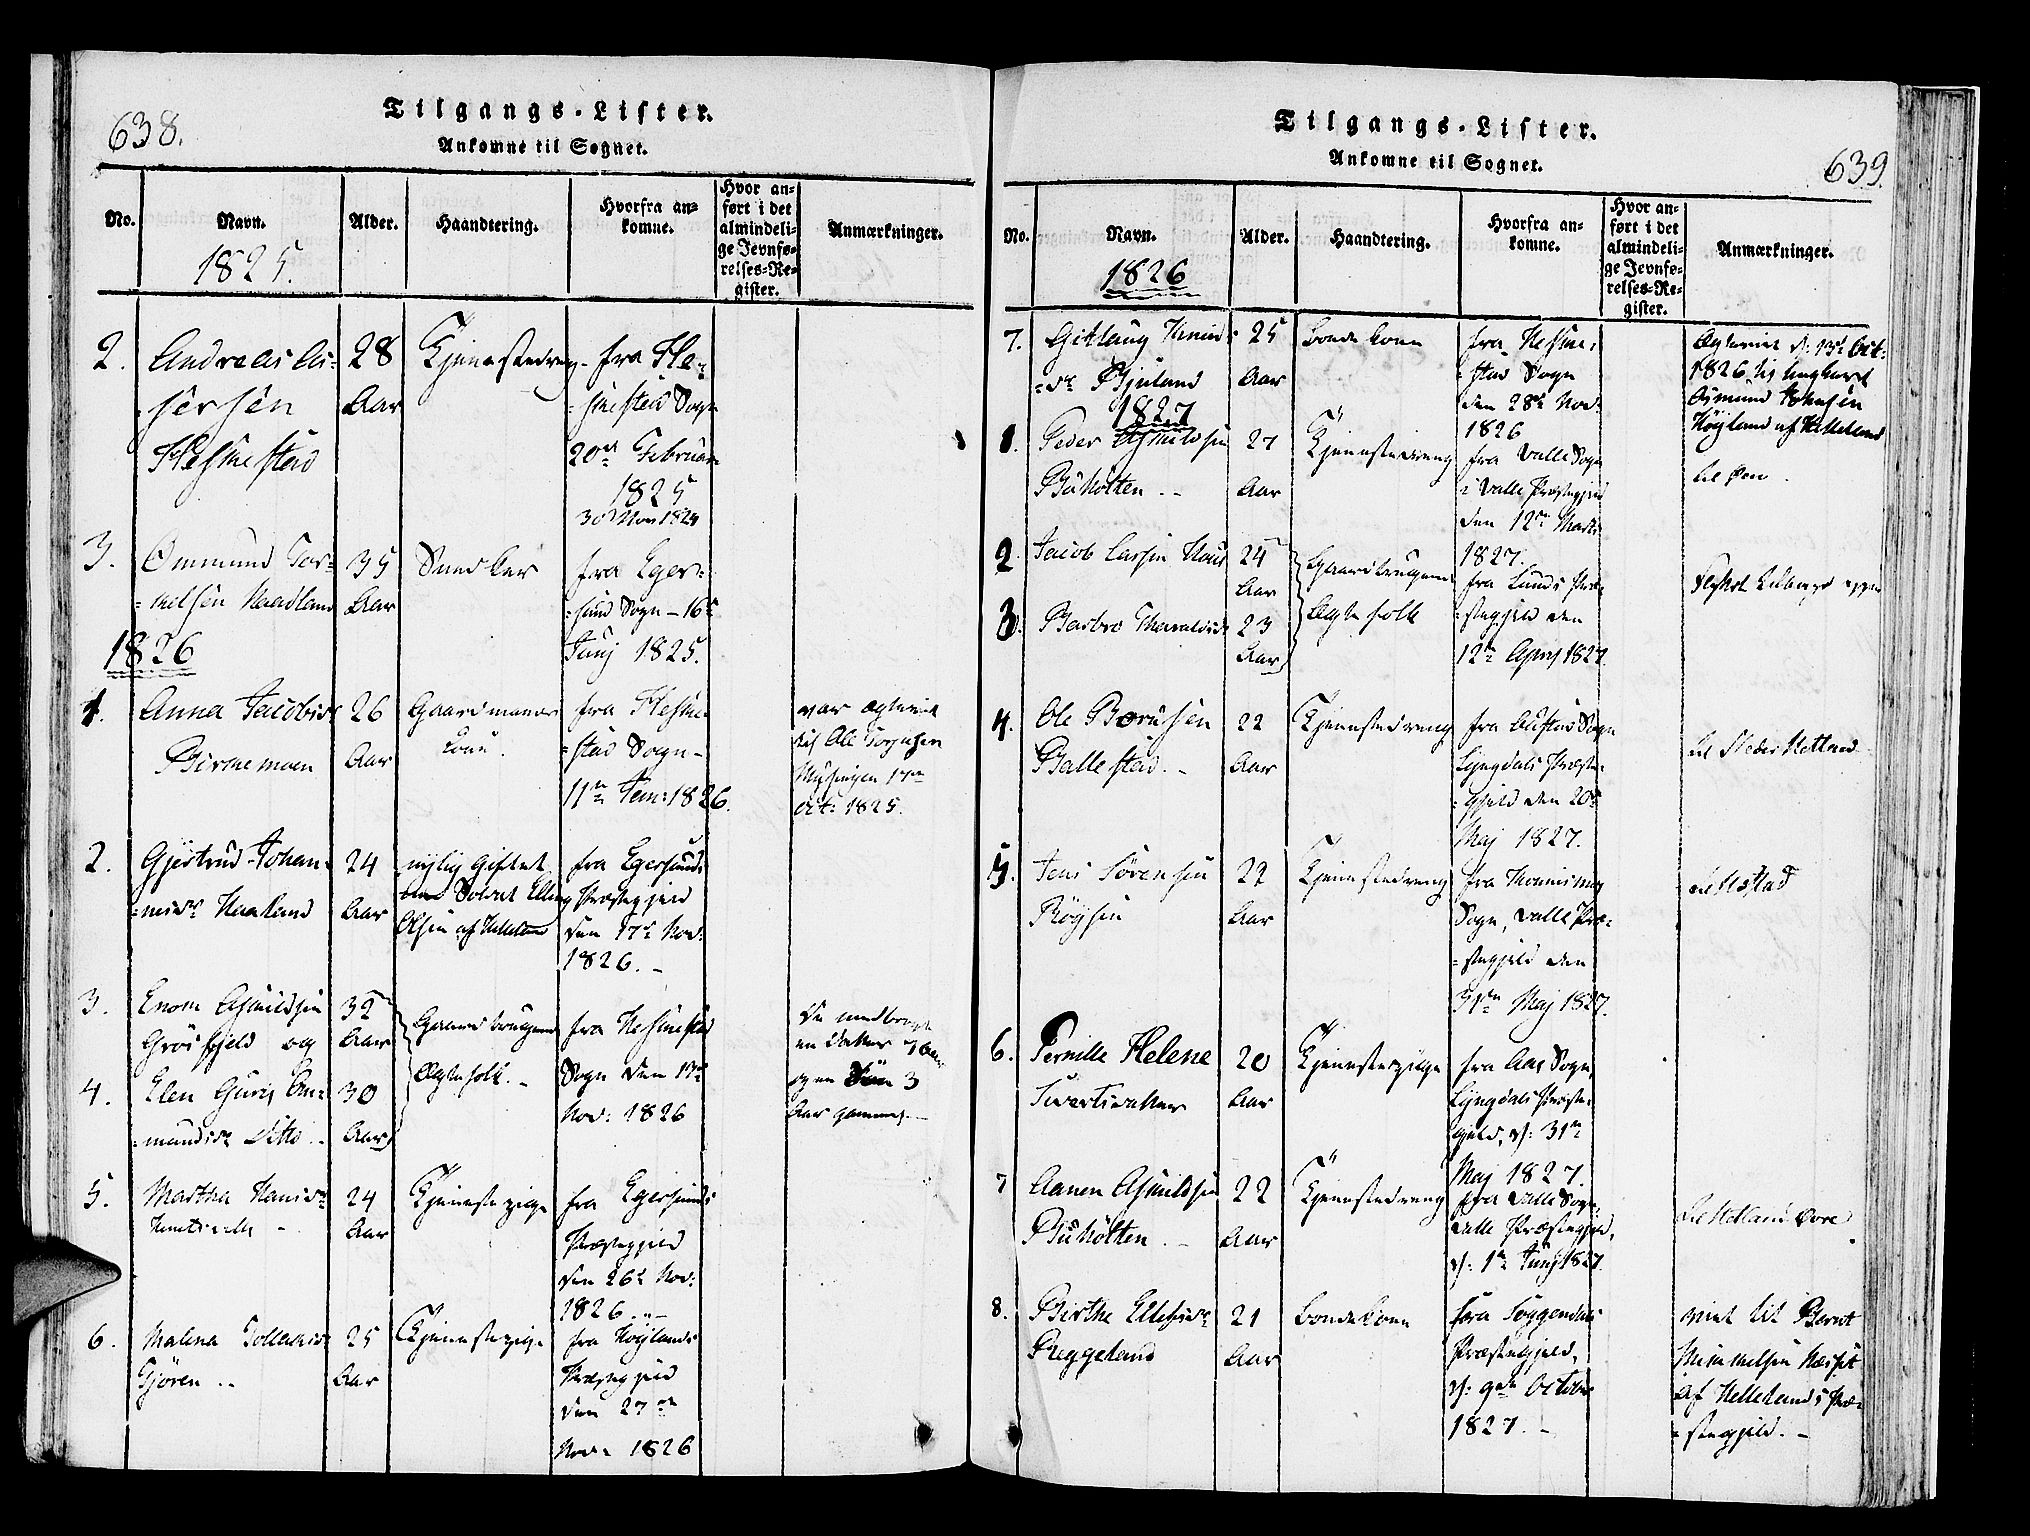 638.
Tilgangs-Lister.
Ankomne til Sognet.
No.
Navn.
1825.
Alder.
Haandtering.
Hvorfra an-
komne.
Hvor an-
ført i det
almindeli-
ge Jevnfø-
relses-Re-
gister.
Anmærkninger.
2.
Andreas As-
sersen
Hesnestad
28
Aar
Tjenestedreng
fra He-
snestad Sogn
20de Februar
1825
3.
Ommund Tor-
kelsen Haadland
35
Aar
fra Eger-
sund Sogn - 16de
Junj 1825.
30 Nov 1824
1826
1.
Anna Jacobsdr
Birkemoen
26
Aar
Gaardmands
Kone.
fra Hesne-
stad Sogn -
11te Jan: 1826.
var ægteviet
til Ole Torgersen
17de
Oct: 1825.
2.
Gjertrud Johan-
nesdr Haaland
24
Aar
nylig giftet
Soldat Elling
Olsen af Helleland
fra Egersunds
Præstegjeld
den 17de Nov:
1826. -
3.
Enom Asmildsen
Grøsfjeld og
32
Aar
Gaardbrugende
Ægtefolk. -
fra Hesnestad
Sogn den 17de
Nov: 1826
De medbragte
en Datter 7 Aar
og en Søn 3
Aar gammel. -
4.
Elen Gurj Om-
mundsdr Ditto. -
30
Aar
5.
Martha Hansdr
24
Aar
Tjenestepige
fra Egersunds
Præstegjeld
den 26de Nov:
1826. -
6.
Malena Tollaksdr
Tjøren
25
Aar
Tjenestepige
fra Høylands
Præstegjeld
den 27de
Nov: 1826
Tilgangs-Lister.
Ankomne til Sognet.
639.
No.
Navn.
1826
Alder.
Haandtering.
Hvorfra an-
komne.
Hvor an-
ført i det
almindeli-
ge Jevnfø-
relses-Re-
gister.
Anmærkninger.
7.
Gitlaug Knud-
dr Bjuland
25
Aar
Bonde Kone
fra Hesne-
stad Sogn
den 28de Nov:
1826
Ægteviet d: 13de Oct:
1826 til Ungkarl
Osmund Johnsen
Høyland af Helleland
1827
1.
Peder Asmildsen
Buholten. -
27
Aar
Tjenestedreng
fra Valle Sogn
i Valle Præstegjeld
den 12te Marts
1827.
2.
Jacob Larsen
24
Aar
Gaardbrugende
Ægtefolk
fra Lunds Præ-
stegjeld den
12te April 1827.
3.
Barbro
23
Aar
4.
Ole Børusen
Ballestad. -
22
Aar
Tjenestedreng
fra Austad Sogn
Lyngdals Præste-
gjeld den 20de
Maj 1827.
til Nedre Netland
5.
Jens Sørensen
Røysen
22
Aar
Tjenestedreng
fra
Sogn, Valle Præ-
stegjeld den
31te Maj 1827.
6.
Pernille Helene
Sivertsdatter
20
Aar
Tjenestepige
fra Aas Sogn,
Lyngdals Præste-
gjeld, d: 31te
Maj 1827.
7
Aanen Asmildsen
Buholten. -
22
Aar
Tjenestedreng
fra Valle Sogn,
Valle Præstegjeld,
d: 1te Junj 1827.
8.
Birthe Ellefsdr
Reggeland
21
Aar
Bondekone
fra Soggendals
Præstegjeld,
d: 9de October
1827. -
viet til Bernt
Mikkelsen
af Hellelands Præ-
stegjeld. -